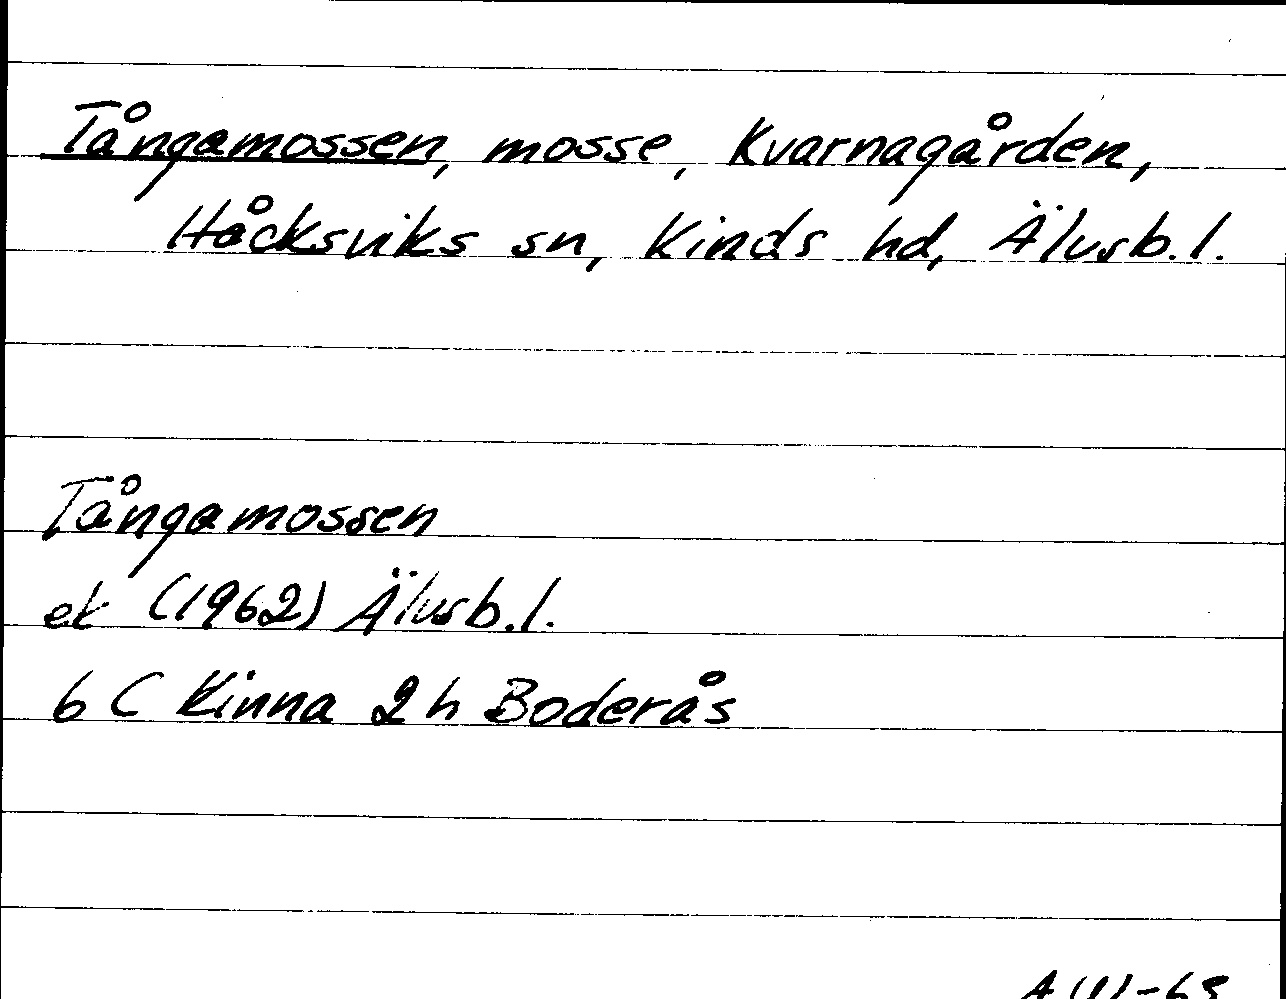 Tångamossen, mosse, Kvarnagården,
Håcksviks sn, Kinds hd, Älvsb.l.
Tångamossen
ek (1962) Älvsb.l.
6 C Kinna 2h Boderås